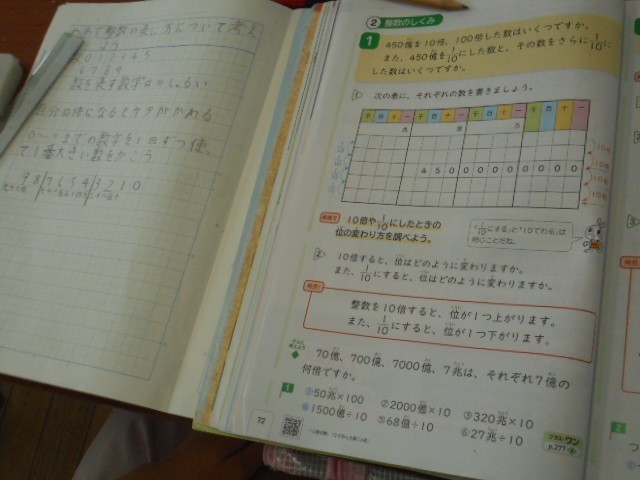 数を表す数字は
10倍の位になるとケタがかわる
0〜9までの数字を1回ずつ使っ
て1番大きい数をかこう
9876543210
② 整数のしくみ
1 450億を10倍、100倍した数はいくつですか。
また、450億を1/10にした数と、その数をさらに1/10に
した数はいくつですか。
1 次の表に、それぞれの数を書きましょう。
千百十一千百十一千百十一千百十一
兆 億 万
45000000000
10倍
10倍
10倍
10倍
10倍や1/10にしたときの
位の変わり方を調べよう。
「1/10にする」と「10でわる」は
同じことだね。
2 10倍すると、位はどのように変わりますか。
また、1/10にすると、位はどのように変わりますか。
整数を10倍すると、位が1つ上がります。
また、1/10にすると、位が1つ下がります。
70億、700億、7000億、7兆は、それぞれ7億の
何倍ですか。
1 ①50兆×100 ②2000億×10 ③320兆×10
④1500億÷10 ⑤68億÷10 ⑥27兆÷10
72
プラス・ワン
p.277